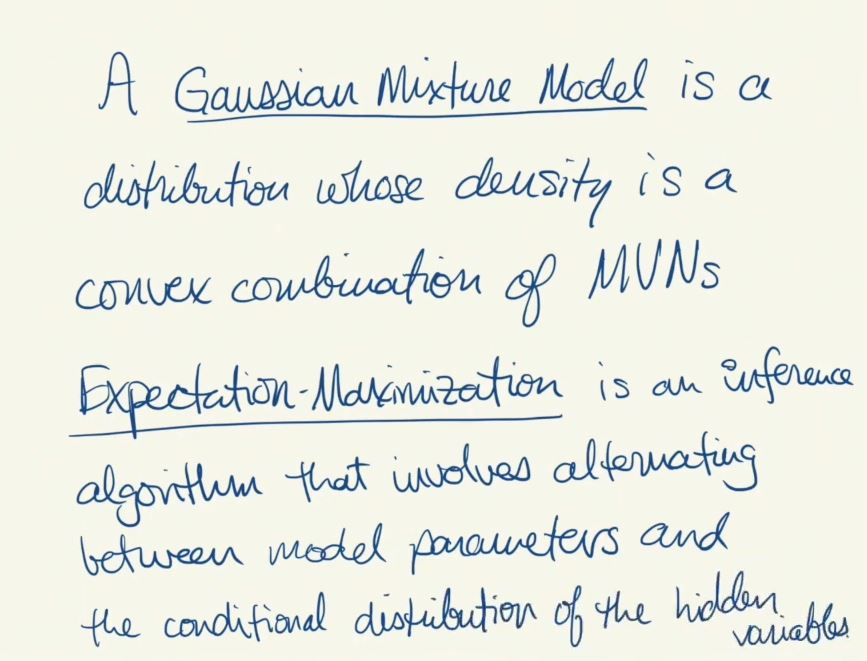 A Gaussian Mixture Model is a
distribution whose density is a
convex combination of MVNs
Expectation-Maximization is an inference
algorithm that involves alternating
between model parameters and
the conditional distribution of the hidden
variables